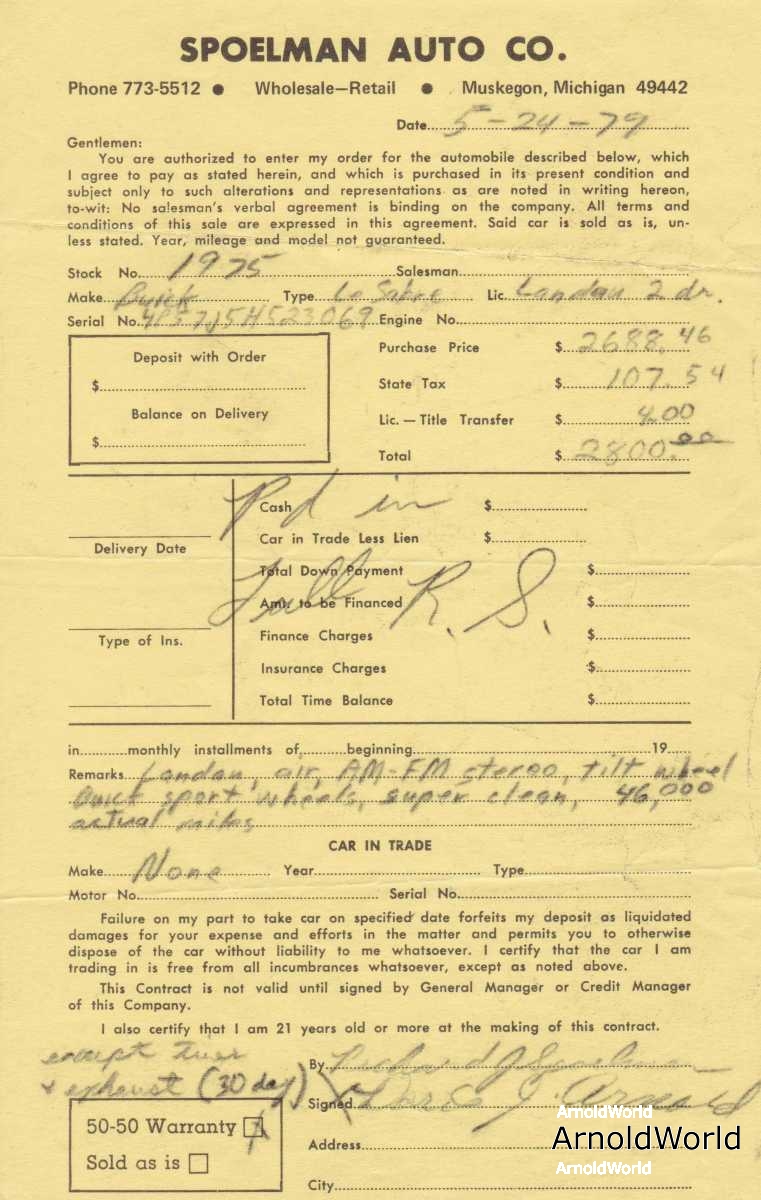 SPOELMAN AUTO CO.
Phone 773-5512 ● Wholesale—Retail ● Muskegon, Michigan 49442
Date 5-24-79
Gentlemen:
You are authorized to enter my order for the automobile described below, which
I agree to pay as stated herein, and which is purchased in its present condition and
subject only to such alterations and representations as are noted in writing hereon,
to-wit: No salesman's verbal agreement is binding on the company. All terms and
conditions of this sale are expressed in this agreement. Said car is sold as is, un-
less stated. Year, mileage and model not guaranteed.
Stock No. 1975 Salesman
Make Buick Type Le Sabre Lic. Landau 2 dr.
Serial No. Engine No.
Deposit with Order
$
Balance on Delivery
$
Purchase Price $ 2688.46
State Tax $ 107.54
Lic. — Title Transfer $ 4.00
Total $ 2800.00
Delivery Date
Type of Ins.
Pd in
Full R. S.
Cash $
Car in Trade Less Lien $
Total Down Payment $
Amt. to be Financed $
Finance Charges $
Insurance Charges $
Total Time Balance $
in monthly installments of beginning 19
Remarks Landau, air, AM-FM stereo, tilt wheel
Buick sport wheels, super clean, 46,000
actual miles
CAR IN TRADE
Make None Year Type
Motor No. Serial No.
Failure on my part to take car on specified date forfeits my deposit as liquidated
damages for your expense and efforts in the matter and permits you to otherwise
dispose of the car without liability to me whatsoever. I certify that the car I am
trading in is free from all incumbrances whatsoever, except as noted above.
This Contract is not valid until signed by General Manager or Credit Manager
of this Company.
I also certify that I am 21 years old or more at the making of this contract.
except tires
+ exhaust (30 day)
50-50 Warranty X
Sold as is
By Richard J Spoelman
Signed J. Arnold
Address
City
ArnoldWorld
ArnoldWorld
ArnoldWorld